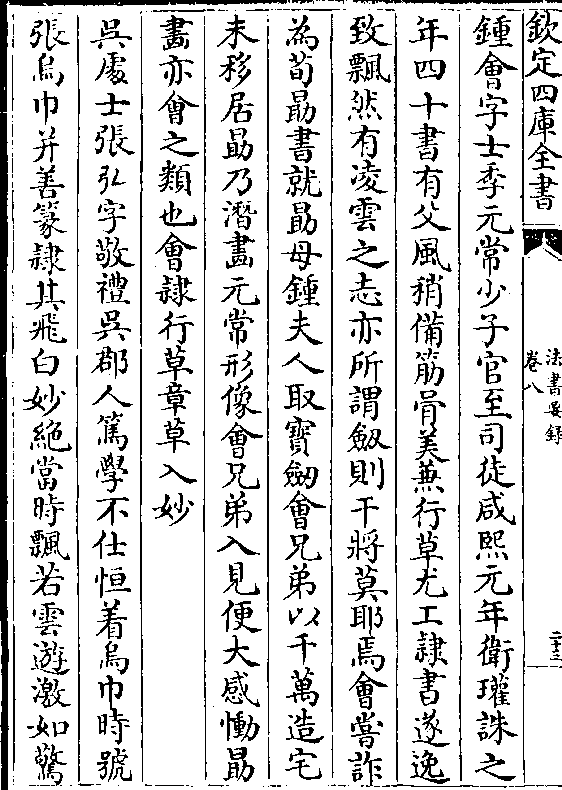 欽定四庫全書
法書要錄
卷八
二十三
鍾會字士季元常少子官至司徒咸熙元年衛瓘誅之
年四十書有父風稍備筋骨美兼行草尤工隸書遂逸
致飄然有凌雲之志亦所謂劔則干將莫耶焉會嘗詐
為荀勗書就勗母鍾夫人取寶劔會兄弟以千萬造宅
未移居勗乃潛畫元常形像會兄弟入見便大感慟勗
畫亦會之類也會隸行草章草入妙
吳處士張弘字敬禮吳郡人篤學不仕恒着烏巾時號
張烏巾并善篆隸其飛白妙絶當時飄若雲遊激如驚